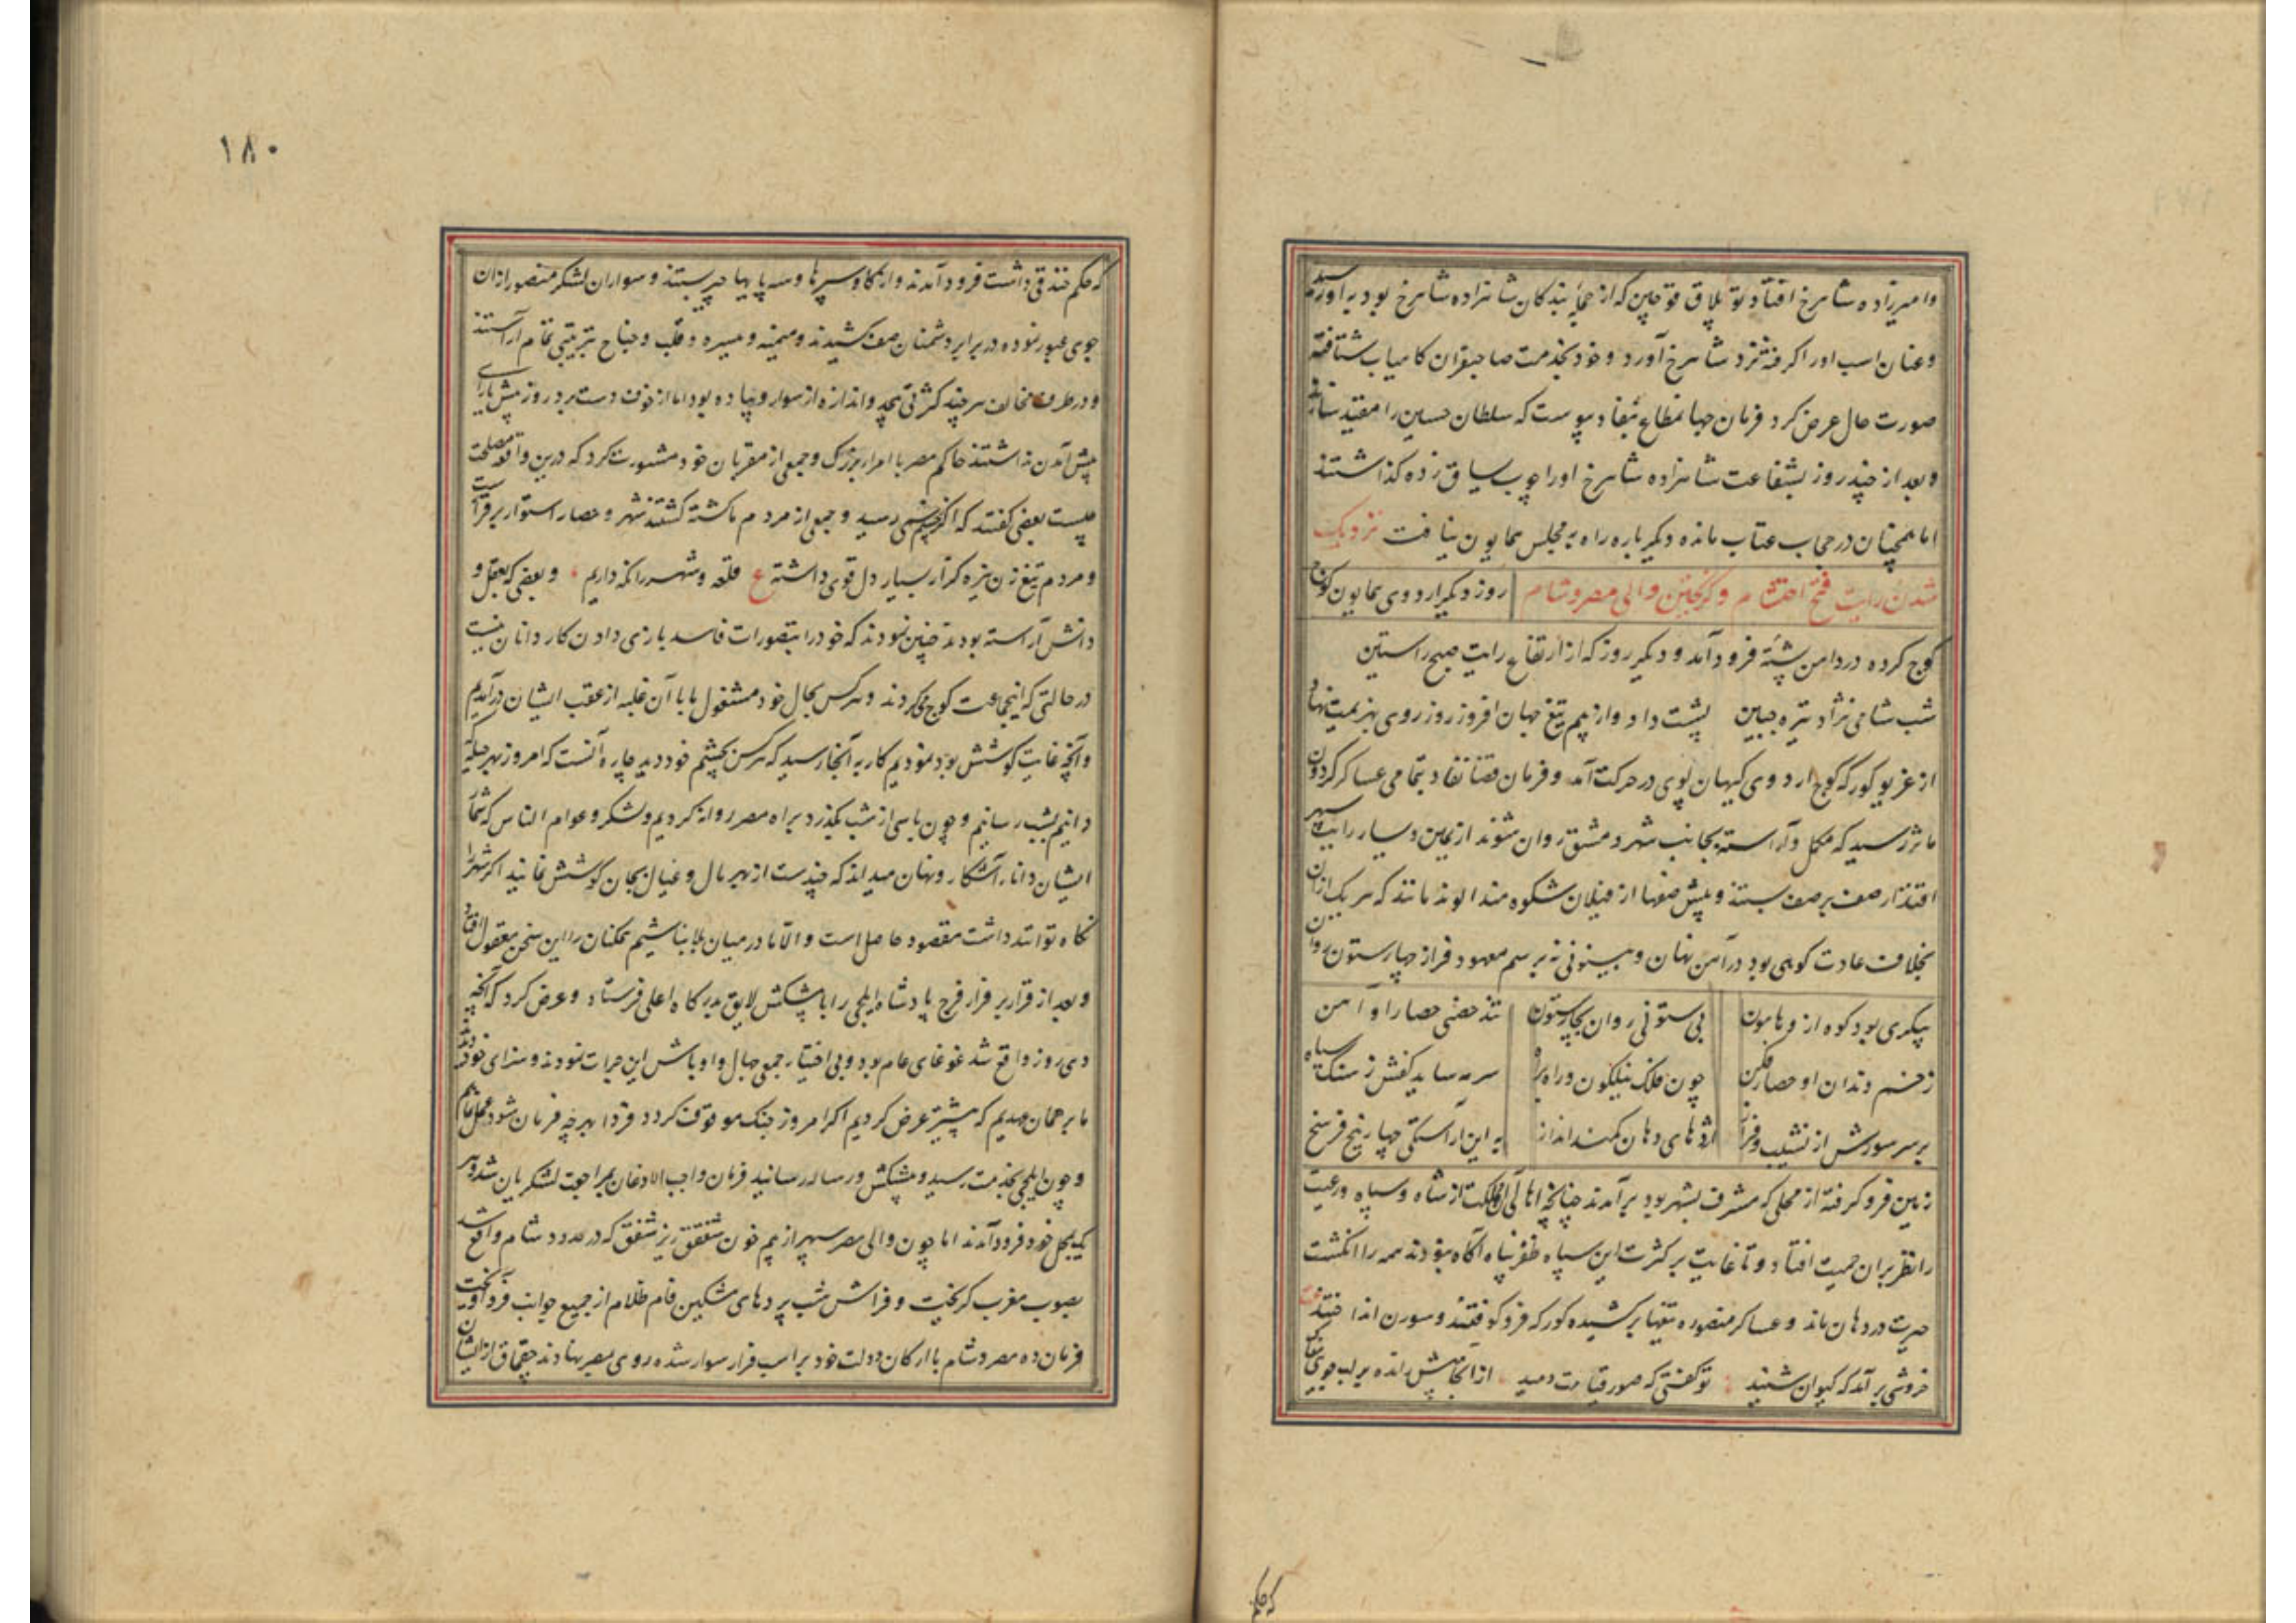 وامیرزاده شاهرخ افتاد توبلاق قوچین که از جمله بندکان شاهزاده شاهرخ بود به او رسید
و عنان اسب او را کرفته نزد شاهرخ آورد و خود بخدمت صاحبقران کامیاب شتافته
صورت حال عرض کرد فرمان جهانمطاع بنفاد پیوست که سلطان حسین را مقید ساختند
و بعد از چند روز بشفاعت شاهزاده شاهرخ او را چوب یساق زده کذاشتند
اما همچنان در حجاب عتاب مانده دیکر باره راه به مجلس همایون نیافت نزدیک
شدن رایت فتح احتشام و کریختن والی مصر و شام روز دیکر اردوی همایون کوچ
کوچ کرده در دامن پشته فرود آمد و دیکر روز که از ارتفاع رایت صبح راستین
شب شامی نژاد تیره جبین پشت داد و از بیم تیغ جهان افروز روز روی بهزیمت نهاد
از غریو کورکه کوچ اردوی کیهان پوی در حرکت آمد و فرمان قضا نفاد بتمامی عساکر کردون
ماثر رسید که مکمل و آراسته بجانب شهر دمشق روان شوند از یمین و یسار رایت سپهر
اقتدار صف بر صف بستند و پیش صفها از فیلان شکوه مند الوند مانند که هر یک از ان
بخلاف عادت کوهی بود در آهن نهان و بیستونی نه برسم معهود فراز چهار ستون روان
پیکری بود کوه ازو هامون بی ستونی روان بچار ستون تند حصنی حصار او آهن
زخم دندان او حصار فکن چون فلک نیلکون و راه برآه سرمه ساید کفش ز سنک سیاه
بر سر سورش از نشیب و فراز اژدهای دهان کمند انداز به این آراستکی چهار پنج فرسخ
زمین فرو کرفته از محلی که مشرف بشهر بود برآمدند چنانچه اهالی آن مملکت از شاه و سپاه و رعیت
را نظر بران حمیت افتاد و تا غایت بر کثرت این سپاه ظفر پناه آکاه نبودند همه را انکشت
حیرت در دهان ماند و عساکر منصوره تیغها برکشیده کورکه فرو کوفتند و سورن انداختند
خروشی بر آمد که کیوان شنید تو کفتی که صور قیامت دمید از انجا پیش رانده بر لب جویی
که حکم
۱۸۰
که حکم خندقی داشت فرود آمدند و از کاو سپرها و سه پایها چپر بستند و سواران لشکر منصور از ان
جوی عبور نموده در برابر دشمنان صف کشیدند و میمنه و میسره و قلب و جناح بترتیبی تمام آراستند
و در طرف مخالف هر چند کثرتی بیحد و اندازه از سوار و پیاده بود اما از خوف دست برد روز پیش یارای
پیش آمدن نداشتند حاکم مصر با امرا بزرک و جمعی از مقربان خود مشورت کرد که درین واقعه مصلحت
چیست بعضی کفتند که اکر چشم زخمی رسید و جمعی از مردم ما کشته کشتند شهر و حصار استوار برقرارست
و مردم تیغ زن نیزه کزار بسیار دل قوی داشته ع قلعه و شهر را نکه داریم و بعضی که بعقل و
دانش آراسته بودند چنین نمودند که خود را بتصورات فاسد بازی دادن کار دانان نیست
در حالتی که اینجماعت کوچ میکردند و هر کس بحال خود مشغول ما با آن غلبه از عقب ایشان درآمدیم
و آنچه غایت کوشش بود نمودیم کار به آنجا رسید که هر کس بچشم خود دید چاره آنست که امروز بهر حیله که
دانیم بشب رسانیم و چون پاسی از شب بکذرد براه مصر روانه کردیم و لشکر و عوام الناس که شمار
ایشان دانا آشکار و نهان میداند که چندست از بهر مال و عیال بجان کوشش نمانید اکر شهر را
نکاه توانند داشت مقصود حاصل است و الّا ما در میان بلا نباشیم همکنان را این سخن معقول افتاد
و بعد از قرار بر فرار فرج پادشاه ایلچی را با پیشکش لایق بدرکاه اعلی فرستاد و عرض کرد که آنچه
دی روز واقع شد غوغای عام بود و بی اختیار جمعی جهال و اوباش این جرات نمودند و سزای خود دیدند
ما بر همان عهدیم که پیشتر عرض کردیم اکر امروز جنک موقوف کردد فردا بهرچه فرمان شود عمل نمائیم
و چون ایلچی بخدمت رسید و پیشکش و رساله رسانید فرمان واجب الاذعان بمراجعت لشکریان شد و هر
یک بمحل خود فرود آمدند اما چون والی مصر سپهر از بیم خون شفق ریز شفق که در حدود شام واقع شد
بصوب مغرب کریخت و فراش شب پردهای مشکین فام ظلام از جمیع جوانب فرو آویخت
فرمان ده مصر و شام با ارکان دولت خود بر اسب فرار سوار شده روی بمصر نهادند چقماق از ایشان